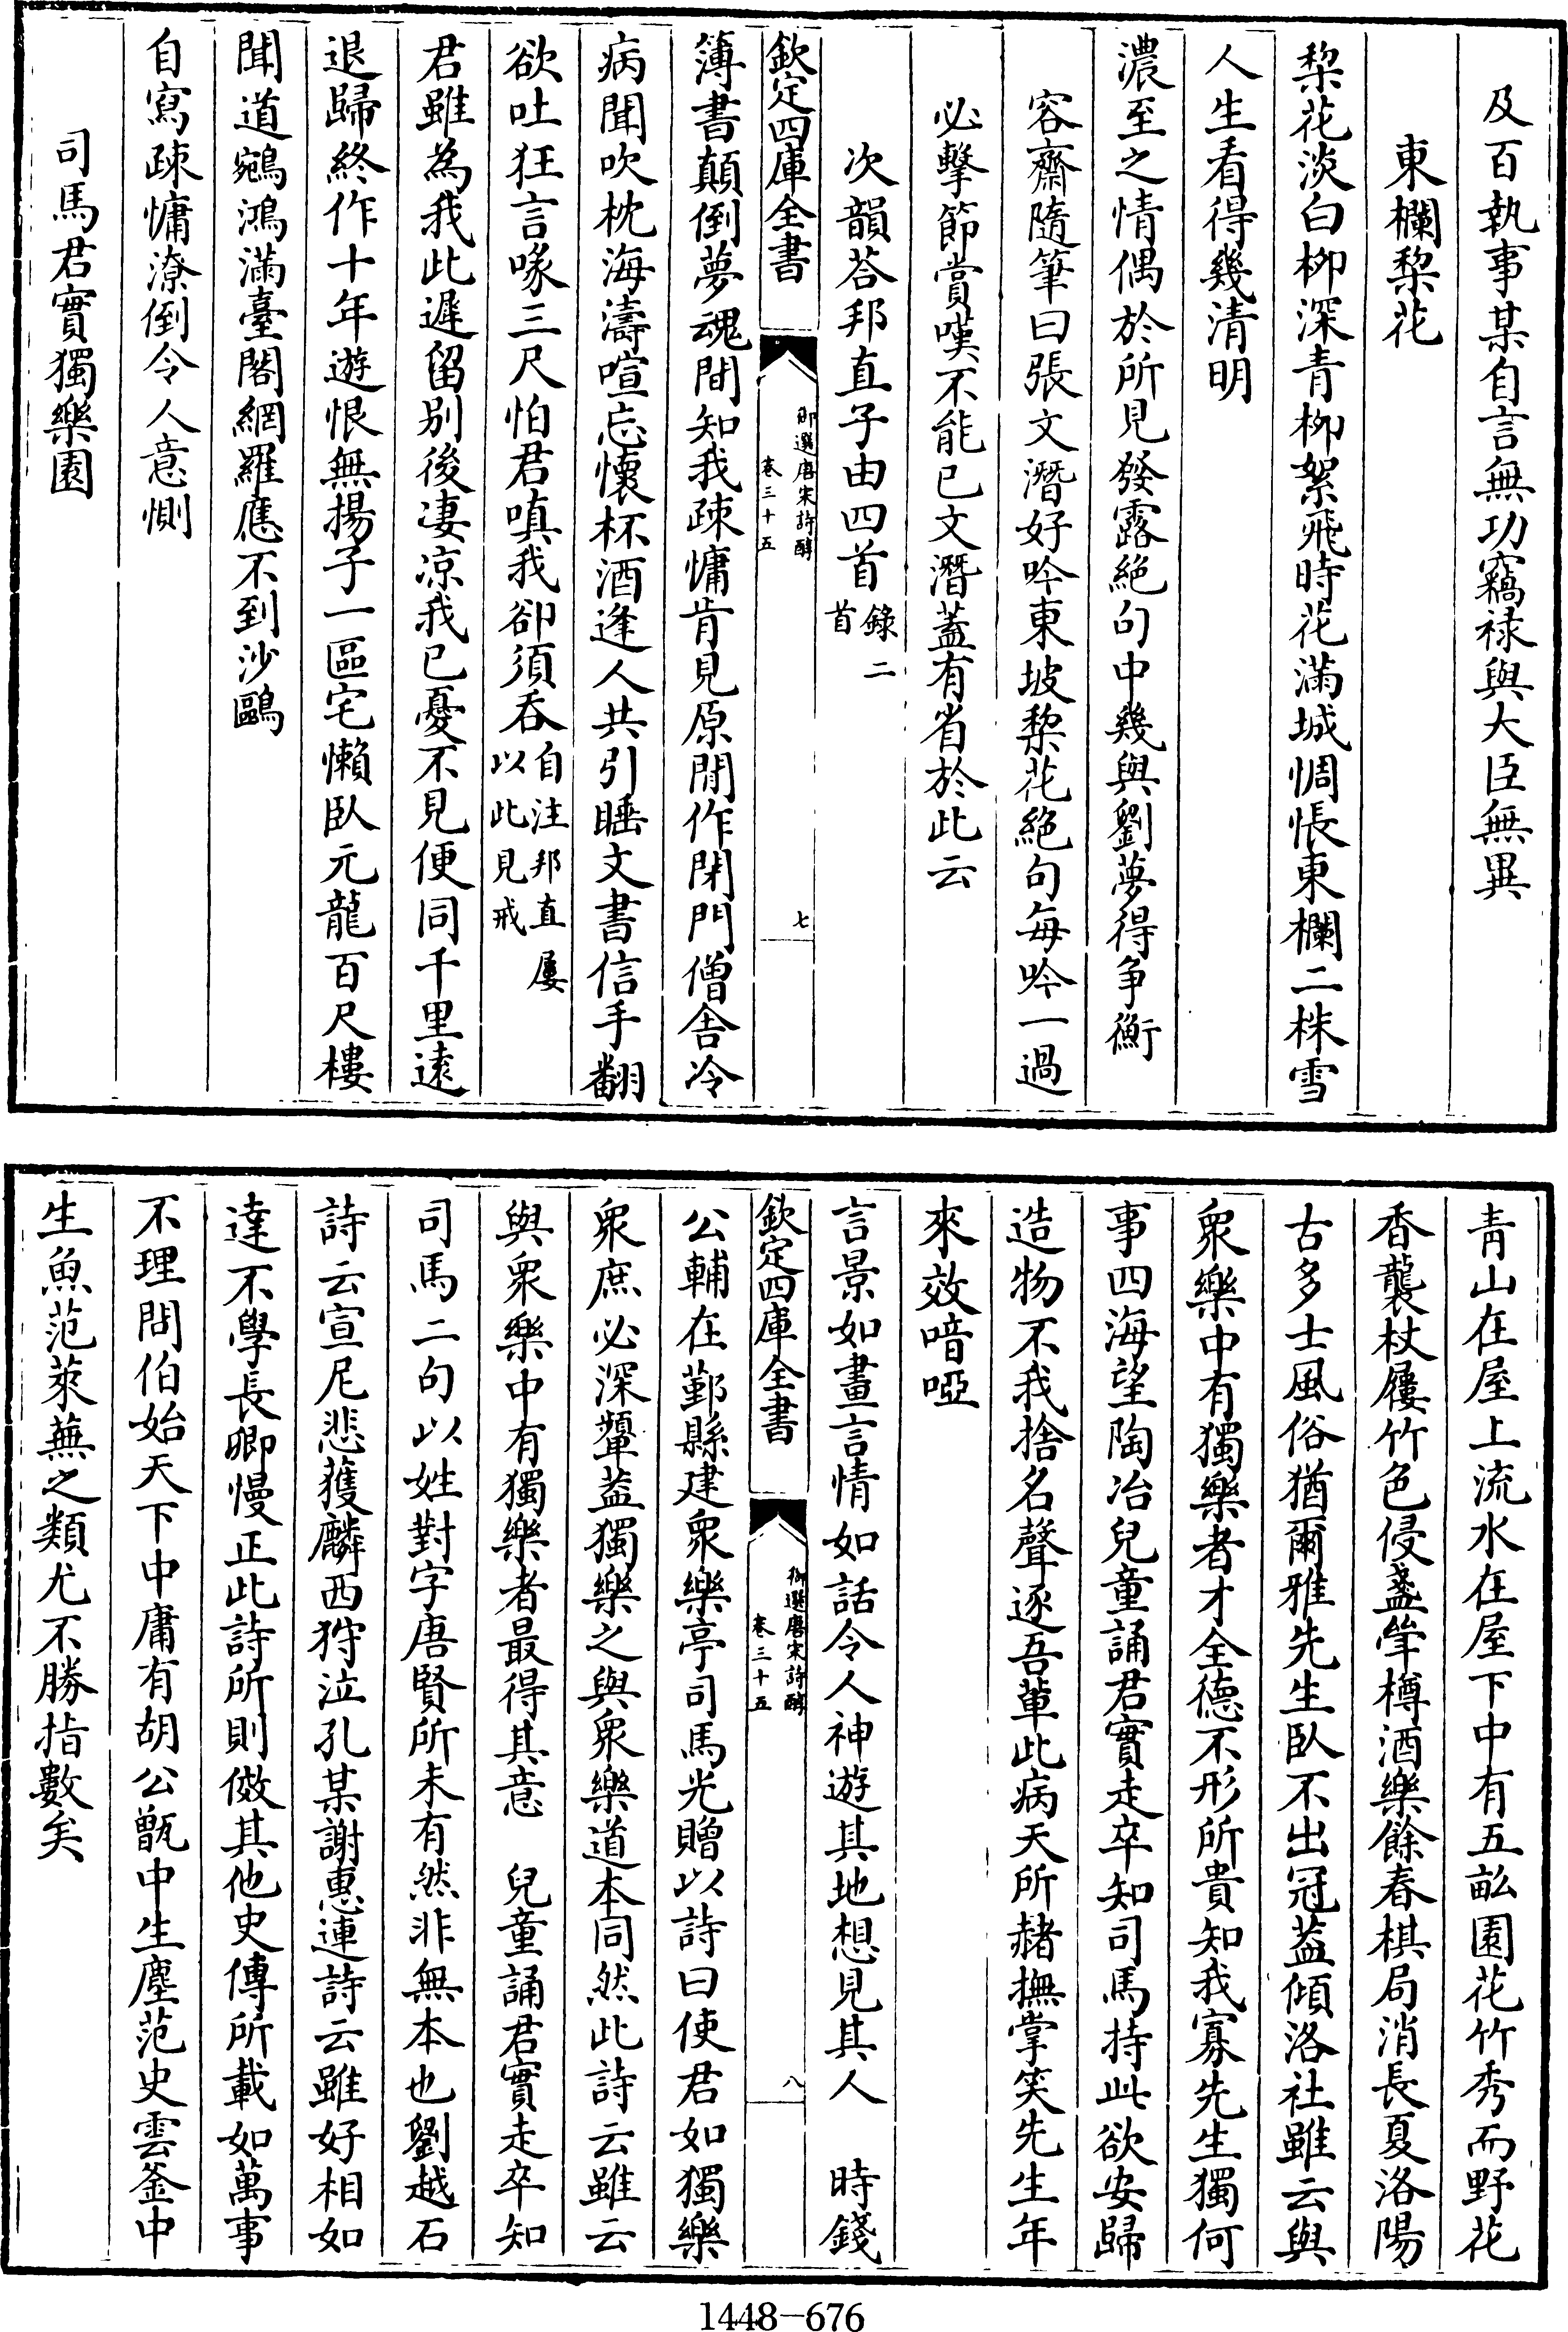 及百執事某自言無功竊禄與大臣無異
東欄棃花
棃花淡白柳深青柳絮飛時花滿城惆悵東欄二株雪
人生看得幾清明
濃至之情偶於所見發露絕句中幾與劉夢得争衡
容齋隨筆曰張文潛好吟東坡棃花絕句每吟一過
必擊節賞嘆不能已文潛蓋有省於此云
次韻荅邦直子由四首錄二首
欽定四庫全書
御選唐宋詩醇
卷三十五
七
簿書顛倒夢魂間知我疎慵肯見原閒作閉門僧舍冷
病聞吹枕海濤喧忘懷杯酒逢人共引睡文書信手翻
欲吐狂言喙三尺怕君嗔我卻須吞自注邦直屢以此見戒
君雖為我此遲留别後凄凉我已憂不見便同千里逺
退歸終作十年遊恨無揚子一區宅懶臥元龍百尺樓
聞道鵷鴻滿臺閣網羅應不到沙鷗
自寫疎慵潦倒令人意惻
司馬君實獨樂園
青山在屋上流水在屋下中有五畝園花竹秀而野花
香襲杖屨竹色侵盞斝樽酒樂餘春棋局消長夏洛陽
古多士風俗猶爾雅先生臥不出冠葢傾洛社雖云與
衆樂中有獨樂者才全德不形所貴知我寡先生獨何
事四海望陶冶兒童誦君實走卒知司馬持此欲安歸
造物不我捨名聲逐吾輩此病天所赭撫掌笑先生年
來效喑啞
言景如畫言情如話令人神遊其地想見其人　時錢
欽定四庫全書
御選唐宋詩醇
卷三十五
八
公輔在鄞縣建衆樂亭司馬光贈以詩曰使君如獨樂
衆庶必深顰葢獨樂之與衆樂道本同然此詩云雖云
與衆樂中有獨樂者最得其意　兒童誦君實走卒知
司馬二句以姓對字唐賢所未有然非無本也劉越石
詩云宣尼悲獲麟西狩泣孔某謝惠連詩云雖好相如
達不學長卿慢正此詩所則傚其他史傳所載如萬事
不理問伯始天下中庸有胡公甑中生塵范史雲釜中
生魚范萊蕪之類尤不勝指數矣
1448-676